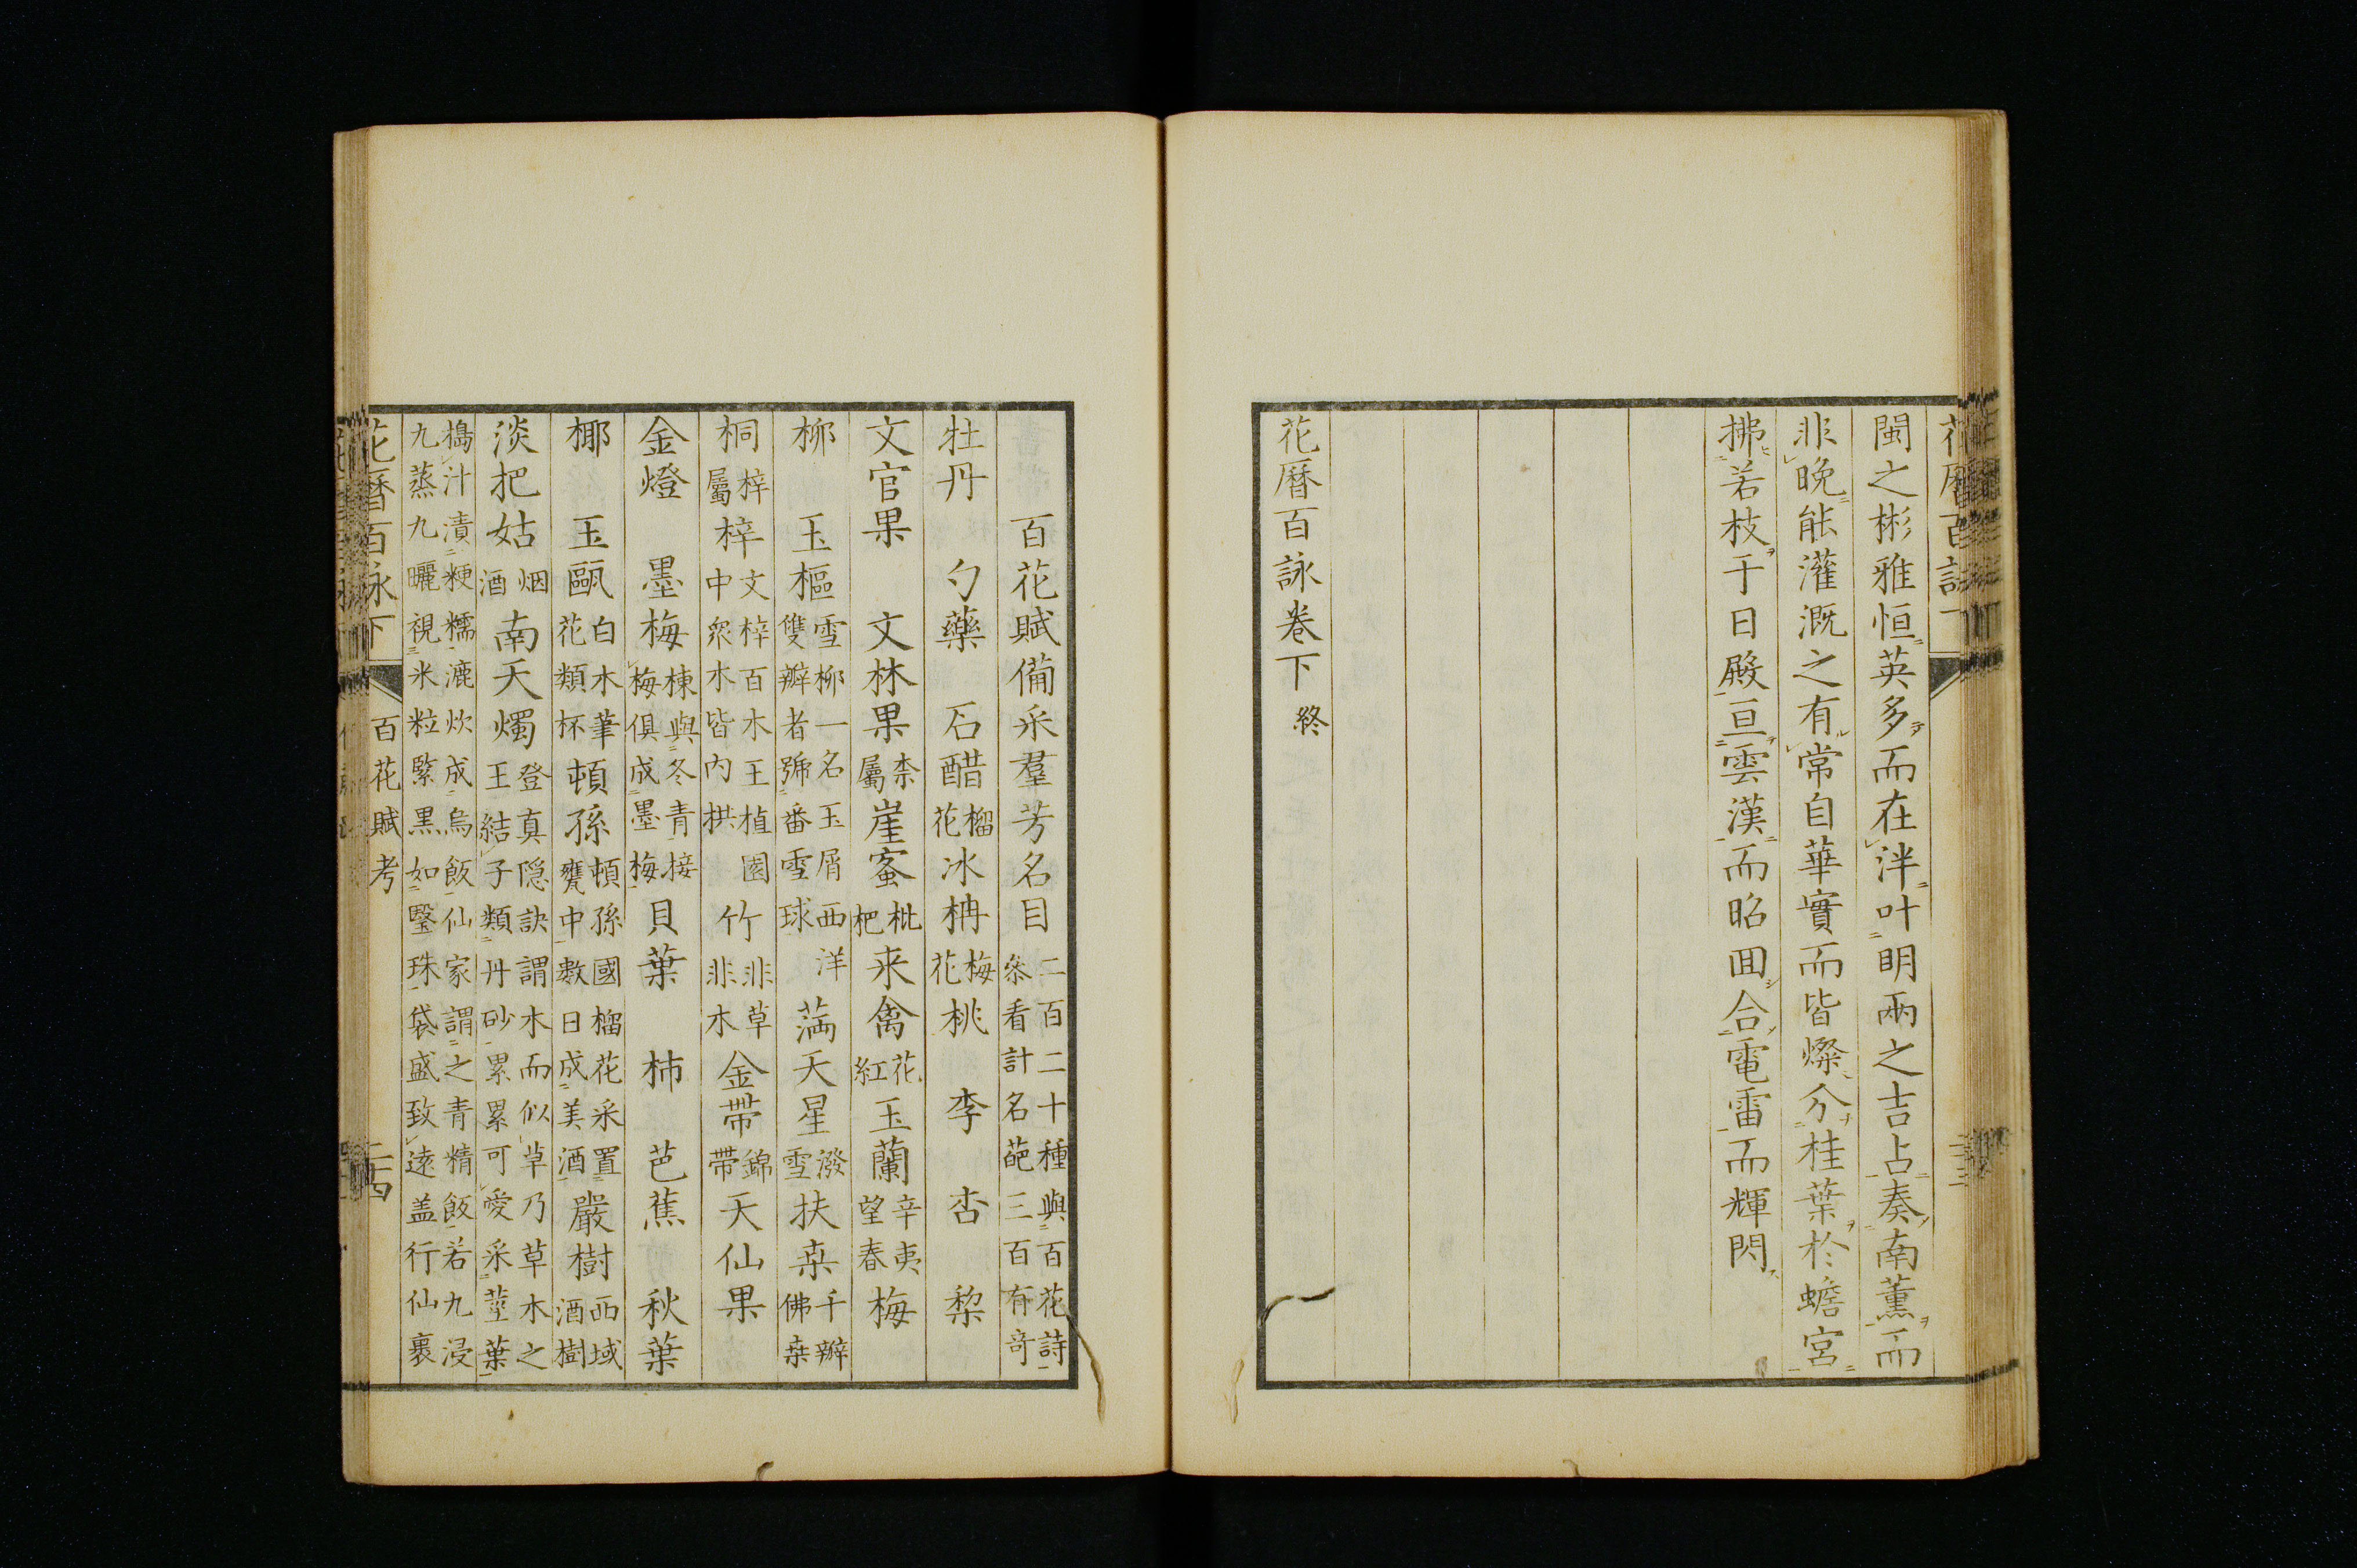 閩之彬雅恒英多而在泮叶明兩之吉占奏南薫而
非晩能灌溉之有常自華實而皆燦分桂葉於蟾宮
拂若枝于日殿亘雲漢而昭囬合電雷而輝閃
花曆百詠卷下終
百花賦備采羣芳名目二百二十種與百花詩
叅看計名葩三百有竒
牡丹 勺藥 石醋榴花冰柟梅花桃 李 杏 梨
文官果 文林果柰屬崖蜜枇杷来禽花紅玉蘭辛夷望春梅
柳 玉樞雪柳一名玉屑西洋雙瓣者號番雪球滿天星潑雪扶桒千瓣佛桒
桐梓屬梓文梓百木王植園中衆木皆内拱竹非草非木金帶錦帶天仙果
金燈 墨梅楝與冬青接梅俱成墨梅貝葉 柿 芭蕉 秋葉
椰 玉甌白木筆花類杯頓孫頓孫國榴花采置甕中數日成美酒嚴樹西域酒樹
淡把姑烟酒南天燭登真隠訣謂木而似草乃草木之王結子類丹砂累累可愛采莖葉
搗汁漬粳糯漉炊成烏飯仙家謂之青精飯若九浸
九蒸九曬視米粒緊黒如瑿珠袋盛致遠盖行仙裹
花曆百詠下 百花賦考